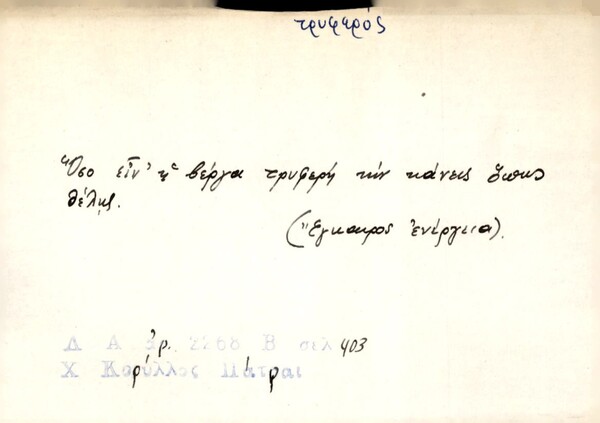 τρυφερός
Ὅσο εἶν' ἡ βέργα τρυφερή τήν κάνεις ὅπως
θέλῃς.
(Ἔγκαιρος ἐνέργεια).
Λ Α ἀρ. 2268 Β σελ 403
Χ Κορύλλος Πάτραι